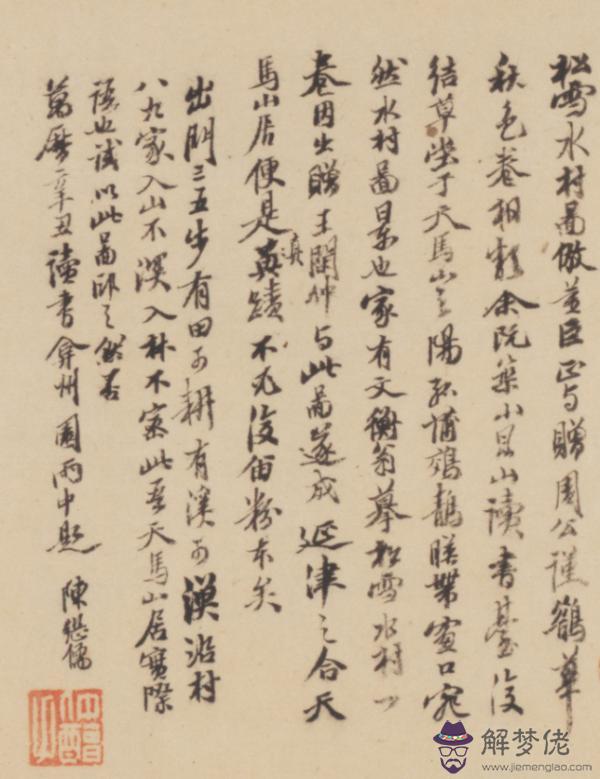 松雪水村圖倣董巨正与贈周公謹鵲華
秋色卷相類余既築小昆山讀書臺後
結草堂于天馬山之陽菰蒲鵁鶄暎帶窗口宛
然水村圖景也家有文衡翁摹松雪水村一
卷因出贈王閑仲与此圖遂成延津之合天
馬山居便是真蹟不必復留粉本矣
出門三五步有田可耕有溪可漁沿村
八九家入山不深入林不密此吾天馬山居實際
語也試以此圖印之然否
萬曆辛丑讀書弇州園雨中題 陳繼儒
解梦佬
www.jiemenglao.com